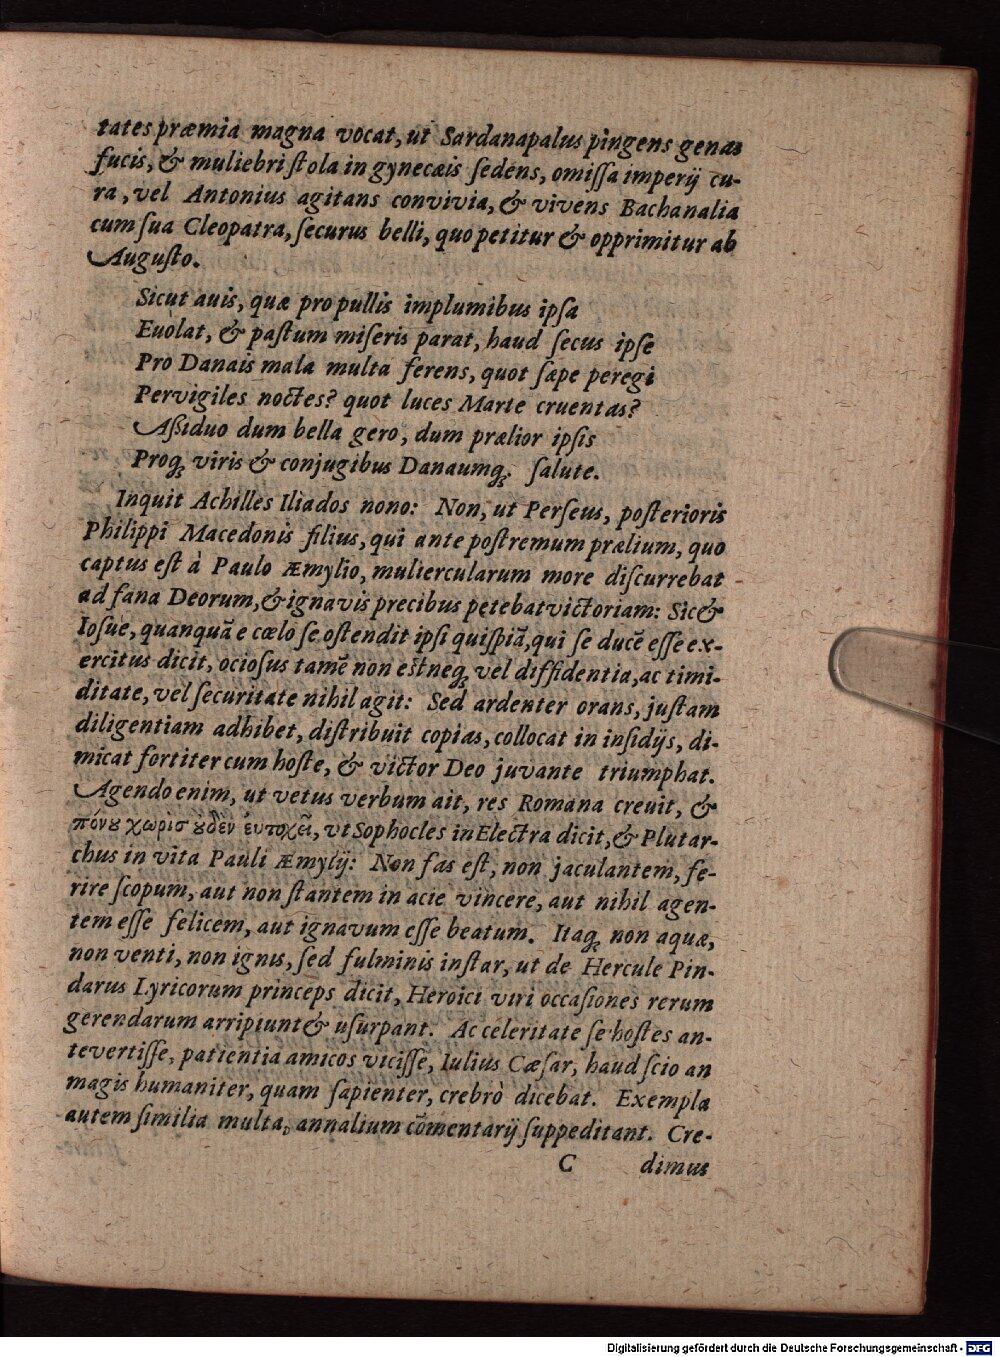 tates præmia magna vocat, ut Sardanapalus pingens genas
fucis, & muliebri ſtola in gynecæis ſedens, omiſſa imperij cu-
ra, vel Antonius agitans convivia, & vivens Bachanalia
cum ſua Cleopatra, ſecurus belli, quo petitur & opprimitur ab
Auguſto.
Sicut auis, quæ pro pullis implumibus ipſa
Euolat, & paſtum miſeris parat, haud ſecus ipſe
Pro Danais mala multa ferens, quot ſæpe peregi
Pervigiles noctes? quot luces Marte cruentas?
Aſſiduo dum bella gero, dum prælior ipſis
Proq́; viris & conjugibus Danaumq́; ſalute.
Inquit Achilles Iliados nono: Non, ut Perſeus, poſterioris
Philippi Macedonis filius, qui ante poſtremum prælium, quo
captus eſt à Paulo Æmylio, muliercularum more diſcurrebat
ad fana Deorum, & ignavis precibus petebat victoriam: Sic &
Ioſue, quanquã e cœlo ſe oſtendit ipſi quiſpiã, qui ſe ducẽ eſſe ex-
ercitus dicit, ocioſus tamẽ non eſt neq́; vel diffidentia, ac timi-
ditate, vel ſecuritate nihil agit: Sed ardenter orans, juſtam
diligentiam adhibet, diſtribuit copias, collocat in inſidijs, di-
micat fortiter cum hoſte, & victor Deo juvante triumphat.
Agendo enim, ut vetus verbum ait, res Romana creuit, &
πόνȣ χωρὶσ ȣ̓δὲν ἐυτοχεῖ, vt Sophocles in Electra dicit, & Plutar-
chus in vita Pauli Æmylij: Non fas eſt, non jaculantem, fe-
rire ſcopum, aut non ſtantem in acie vincere, aut nihil agen-
tem eſſe felicem, aut ignavum eſſe beatum. Itaq́; non aquæ,
non venti, non ignis, ſed fulminis inſtar, ut de Hercule Pin-
darus Lyricorum princeps dicit, Heroici viri occaſiones rerum
gerendarum arripiunt & uſurpant. Ac celeritate ſe hoſtes an-
tevertiſſe, patientia amicos viciſſe, Iulius Cæſar, haud ſcio an
magis humaniter, quam ſapienter, crebrò dicebat. Exempla
autem ſimilia multa, annalium cõmentarij ſuppeditant. Cre-
C dimus
Digitalisierung gefördert durch die Deutsche Forschungsgemeinschaft - DFG